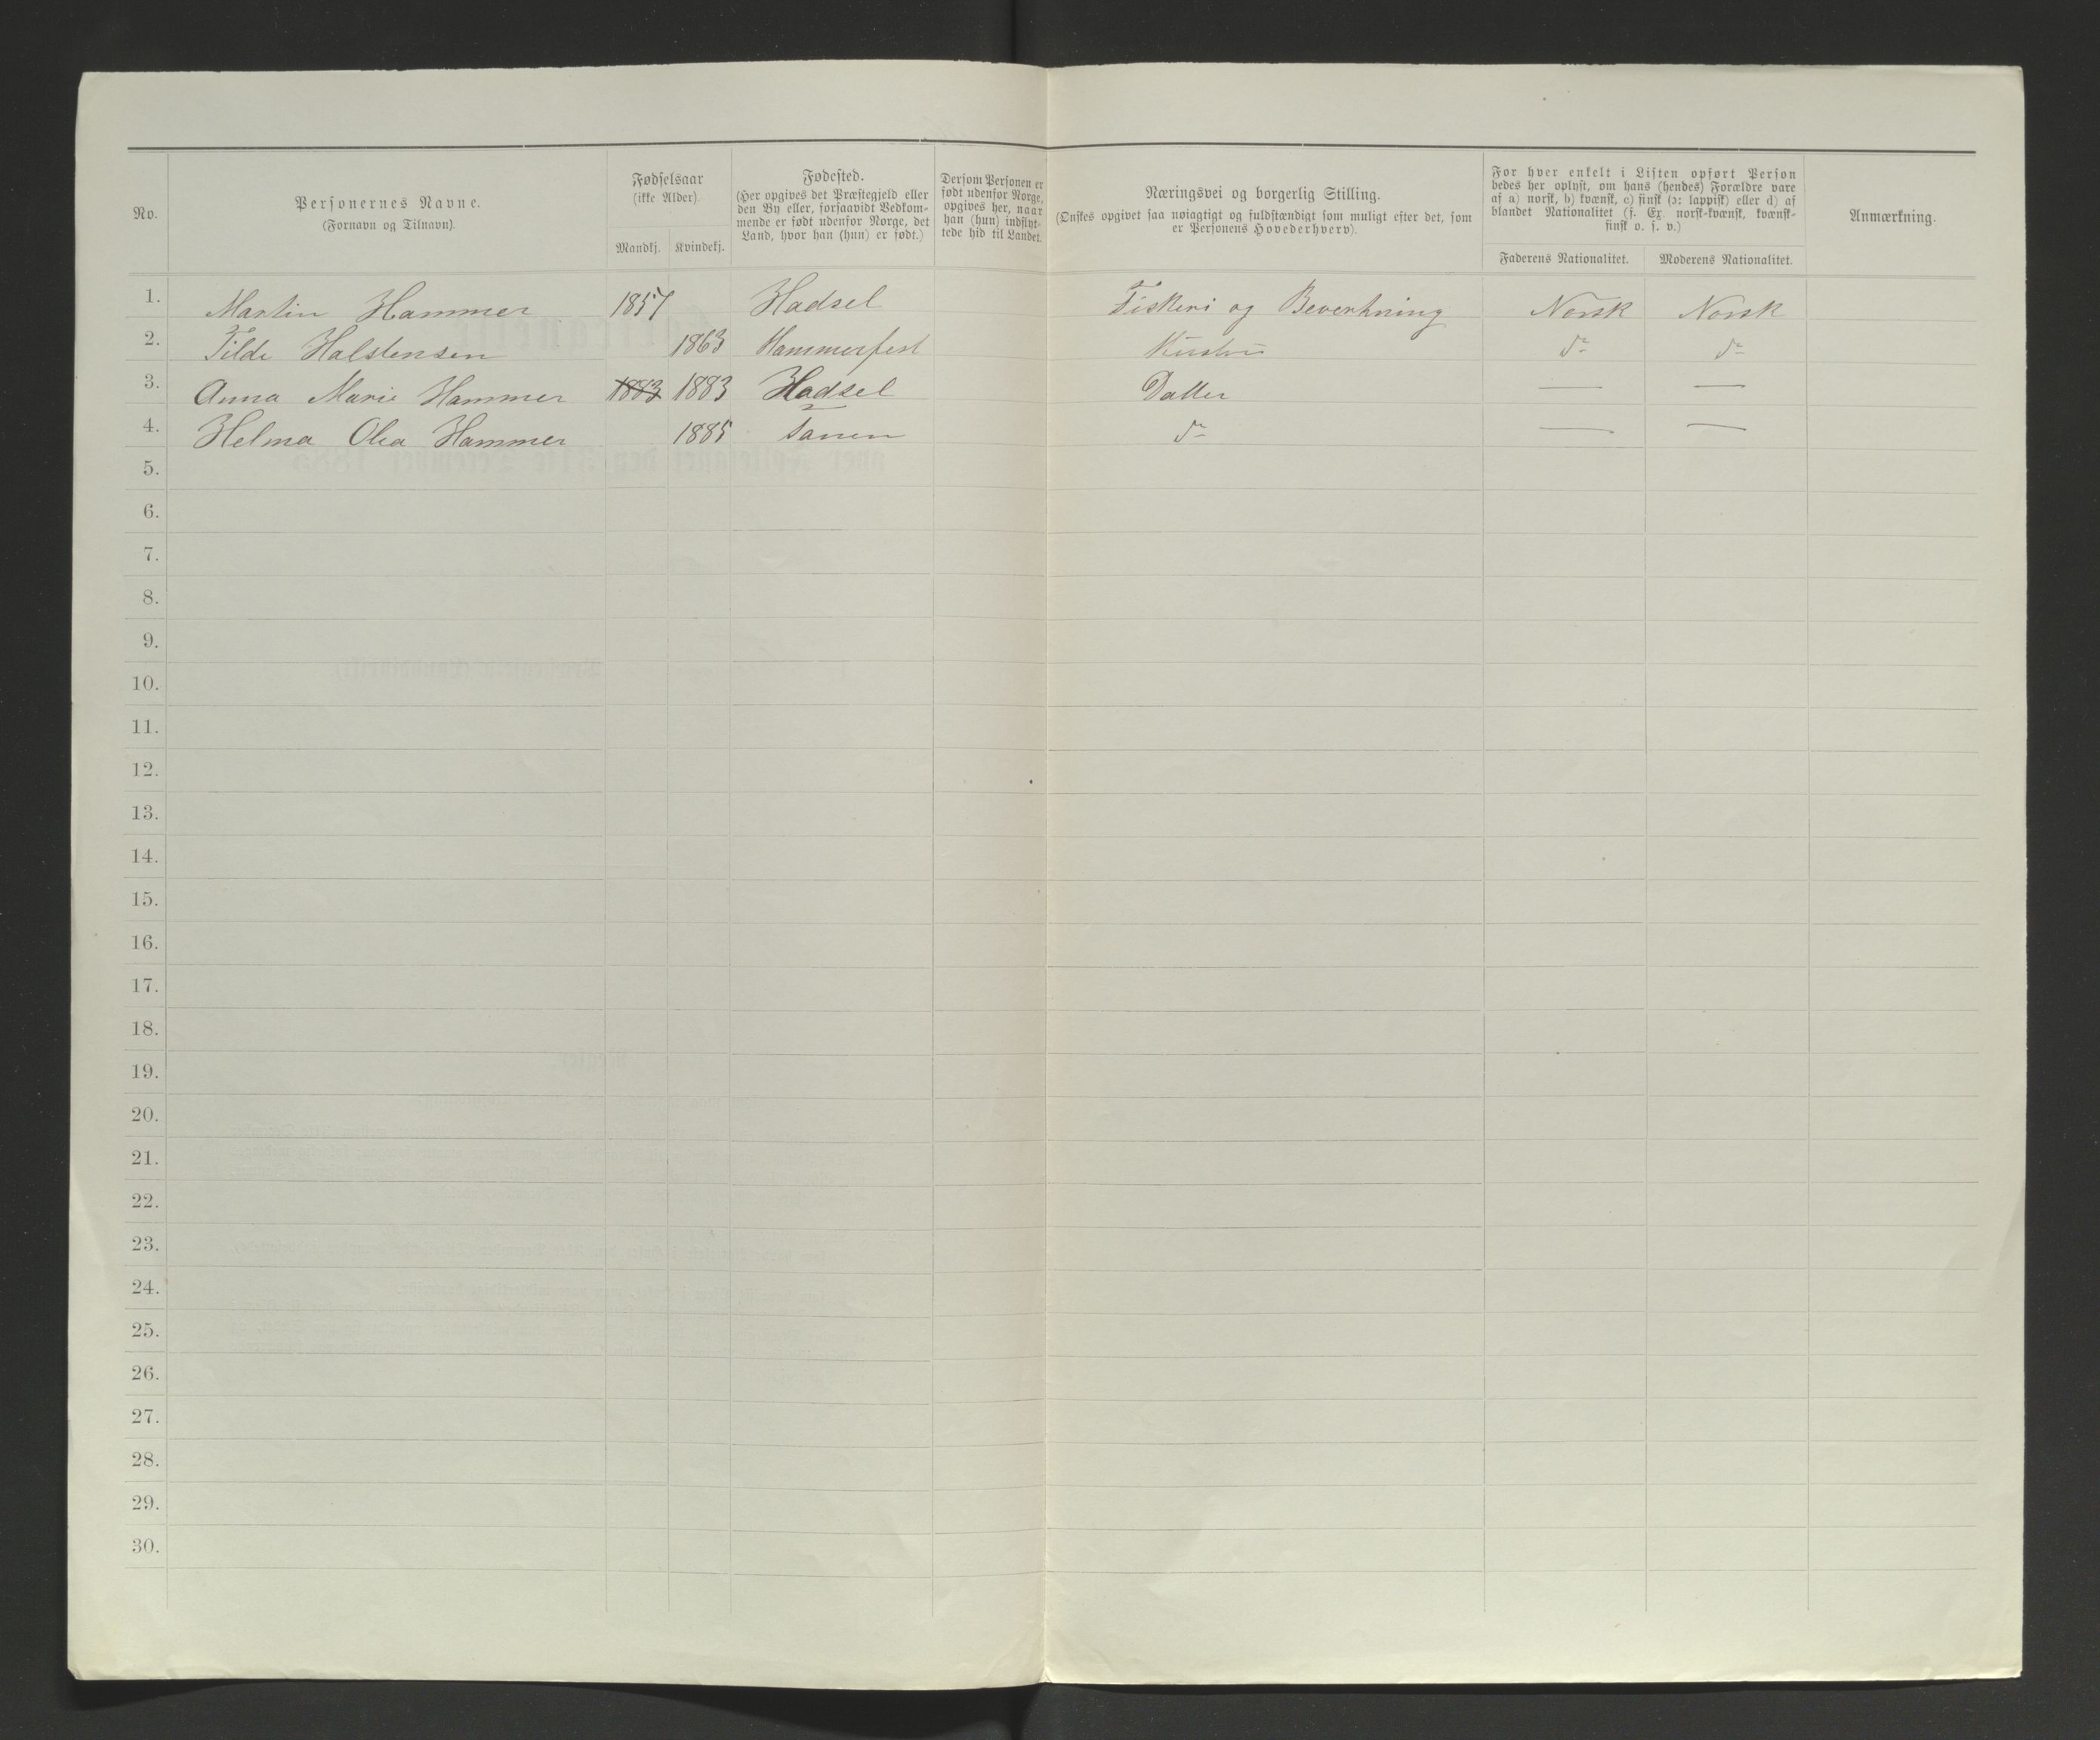 No.
Personernes Navne.
(Fornavn og Tilnavn).
Fødselsaar
(ikke Alder).
Mandkj. Kvindekj.
Fødested.
(Her opgives det Præstegjeld eller
den By eller, forsaavidt Vedkom-
mende er født udenfor Norge, det
Land, hvor han (hun) er født.)
Dersom Personen er
født udenfor Norge,
opgives her, naar
han (hun) indflyt-
tede hid til Landet.
Næringsvei og borgerlig Stilling.
(Ønskes opgivet saa nøiagtigt og fuldstændigt som muligt efter det, som
er Personens Hovederhverv).
For hver enkelt i Listen opført Person
bedes her oplyst, om hans (hendes) Forældre vare
af a) norsk, b) kvænsk, c) finsk (ɔ: lappisk) eller d) af
blandet Nationalitet (f. Ex. norsk-kvænsk, kvænsk-
finsk o. s. v.)
Faderens Nationalitet. Moderens Nationalitet.
Anmærkning.
1. Martin Hammer 1857 Hadsel Fiskeri og Beverkning Norsk Norsk
2. Tilde Halstensen 1863 Hammerfest Hustru do do
3. Anna Marie Hammer 1883 1883 Hadsel Datter — —
4. Helma Olea Hammer 1885 Tanen do — —
5.
6.
7.
8.
9.
10.
11.
12.
13.
14.
15.
16.
17.
18.
19.
20.
21.
22.
23.
24.
25.
26.
27.
28.
29.
30.